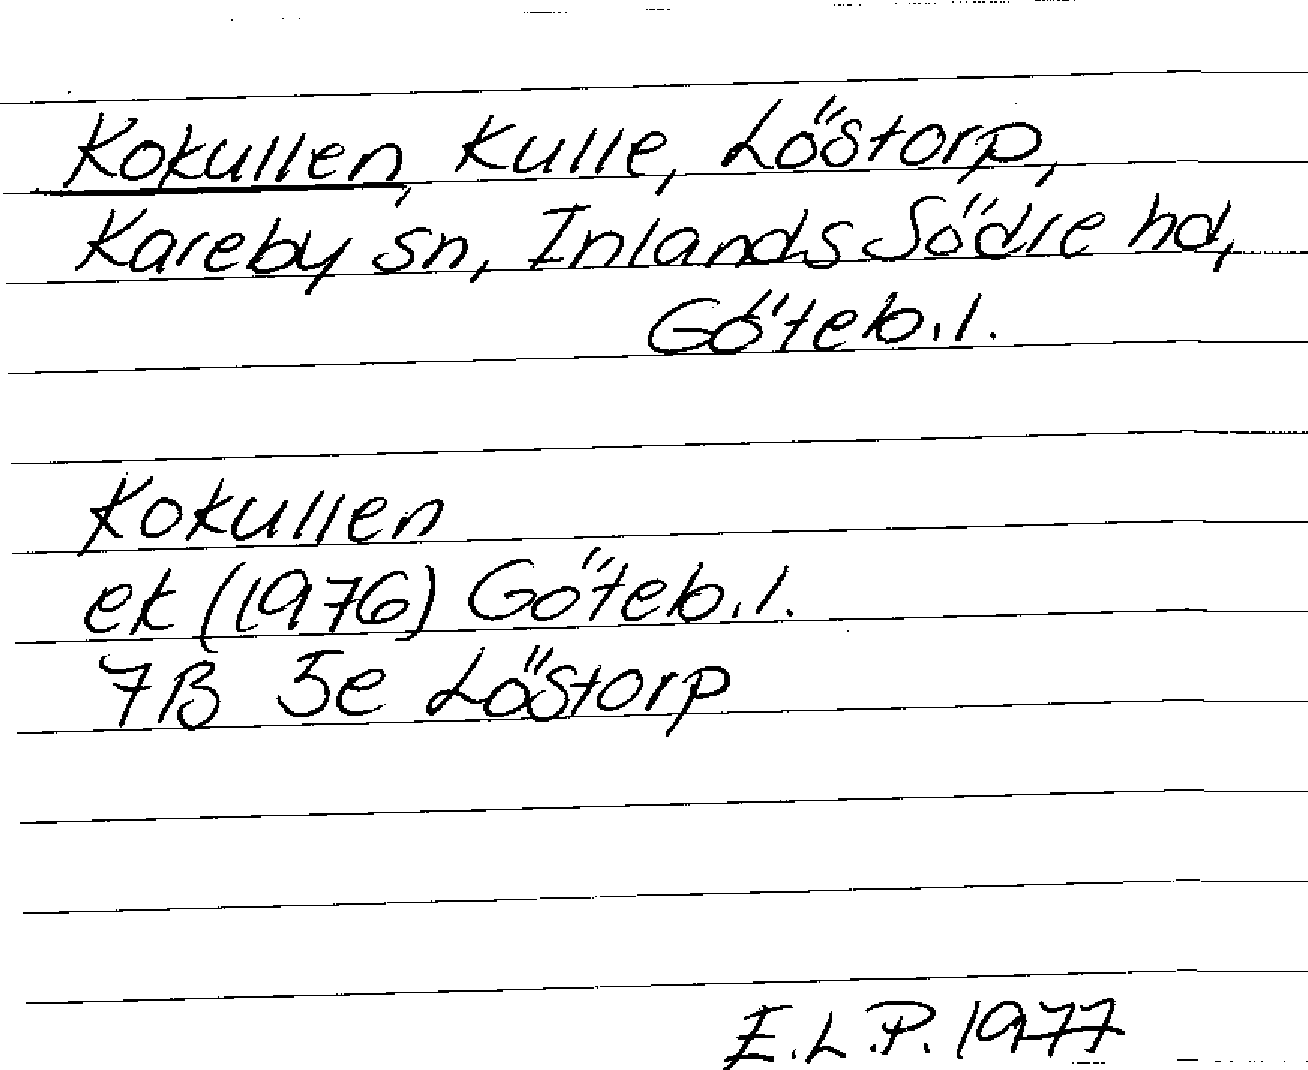 Kokullen, Kulle, Löstorp,
Kareby sn, Inlands Södre hd,
Göteb.l.
Kokullen
ek (1976) Göteb.l.
7B 5e Löstorp
E.L.P. 1977